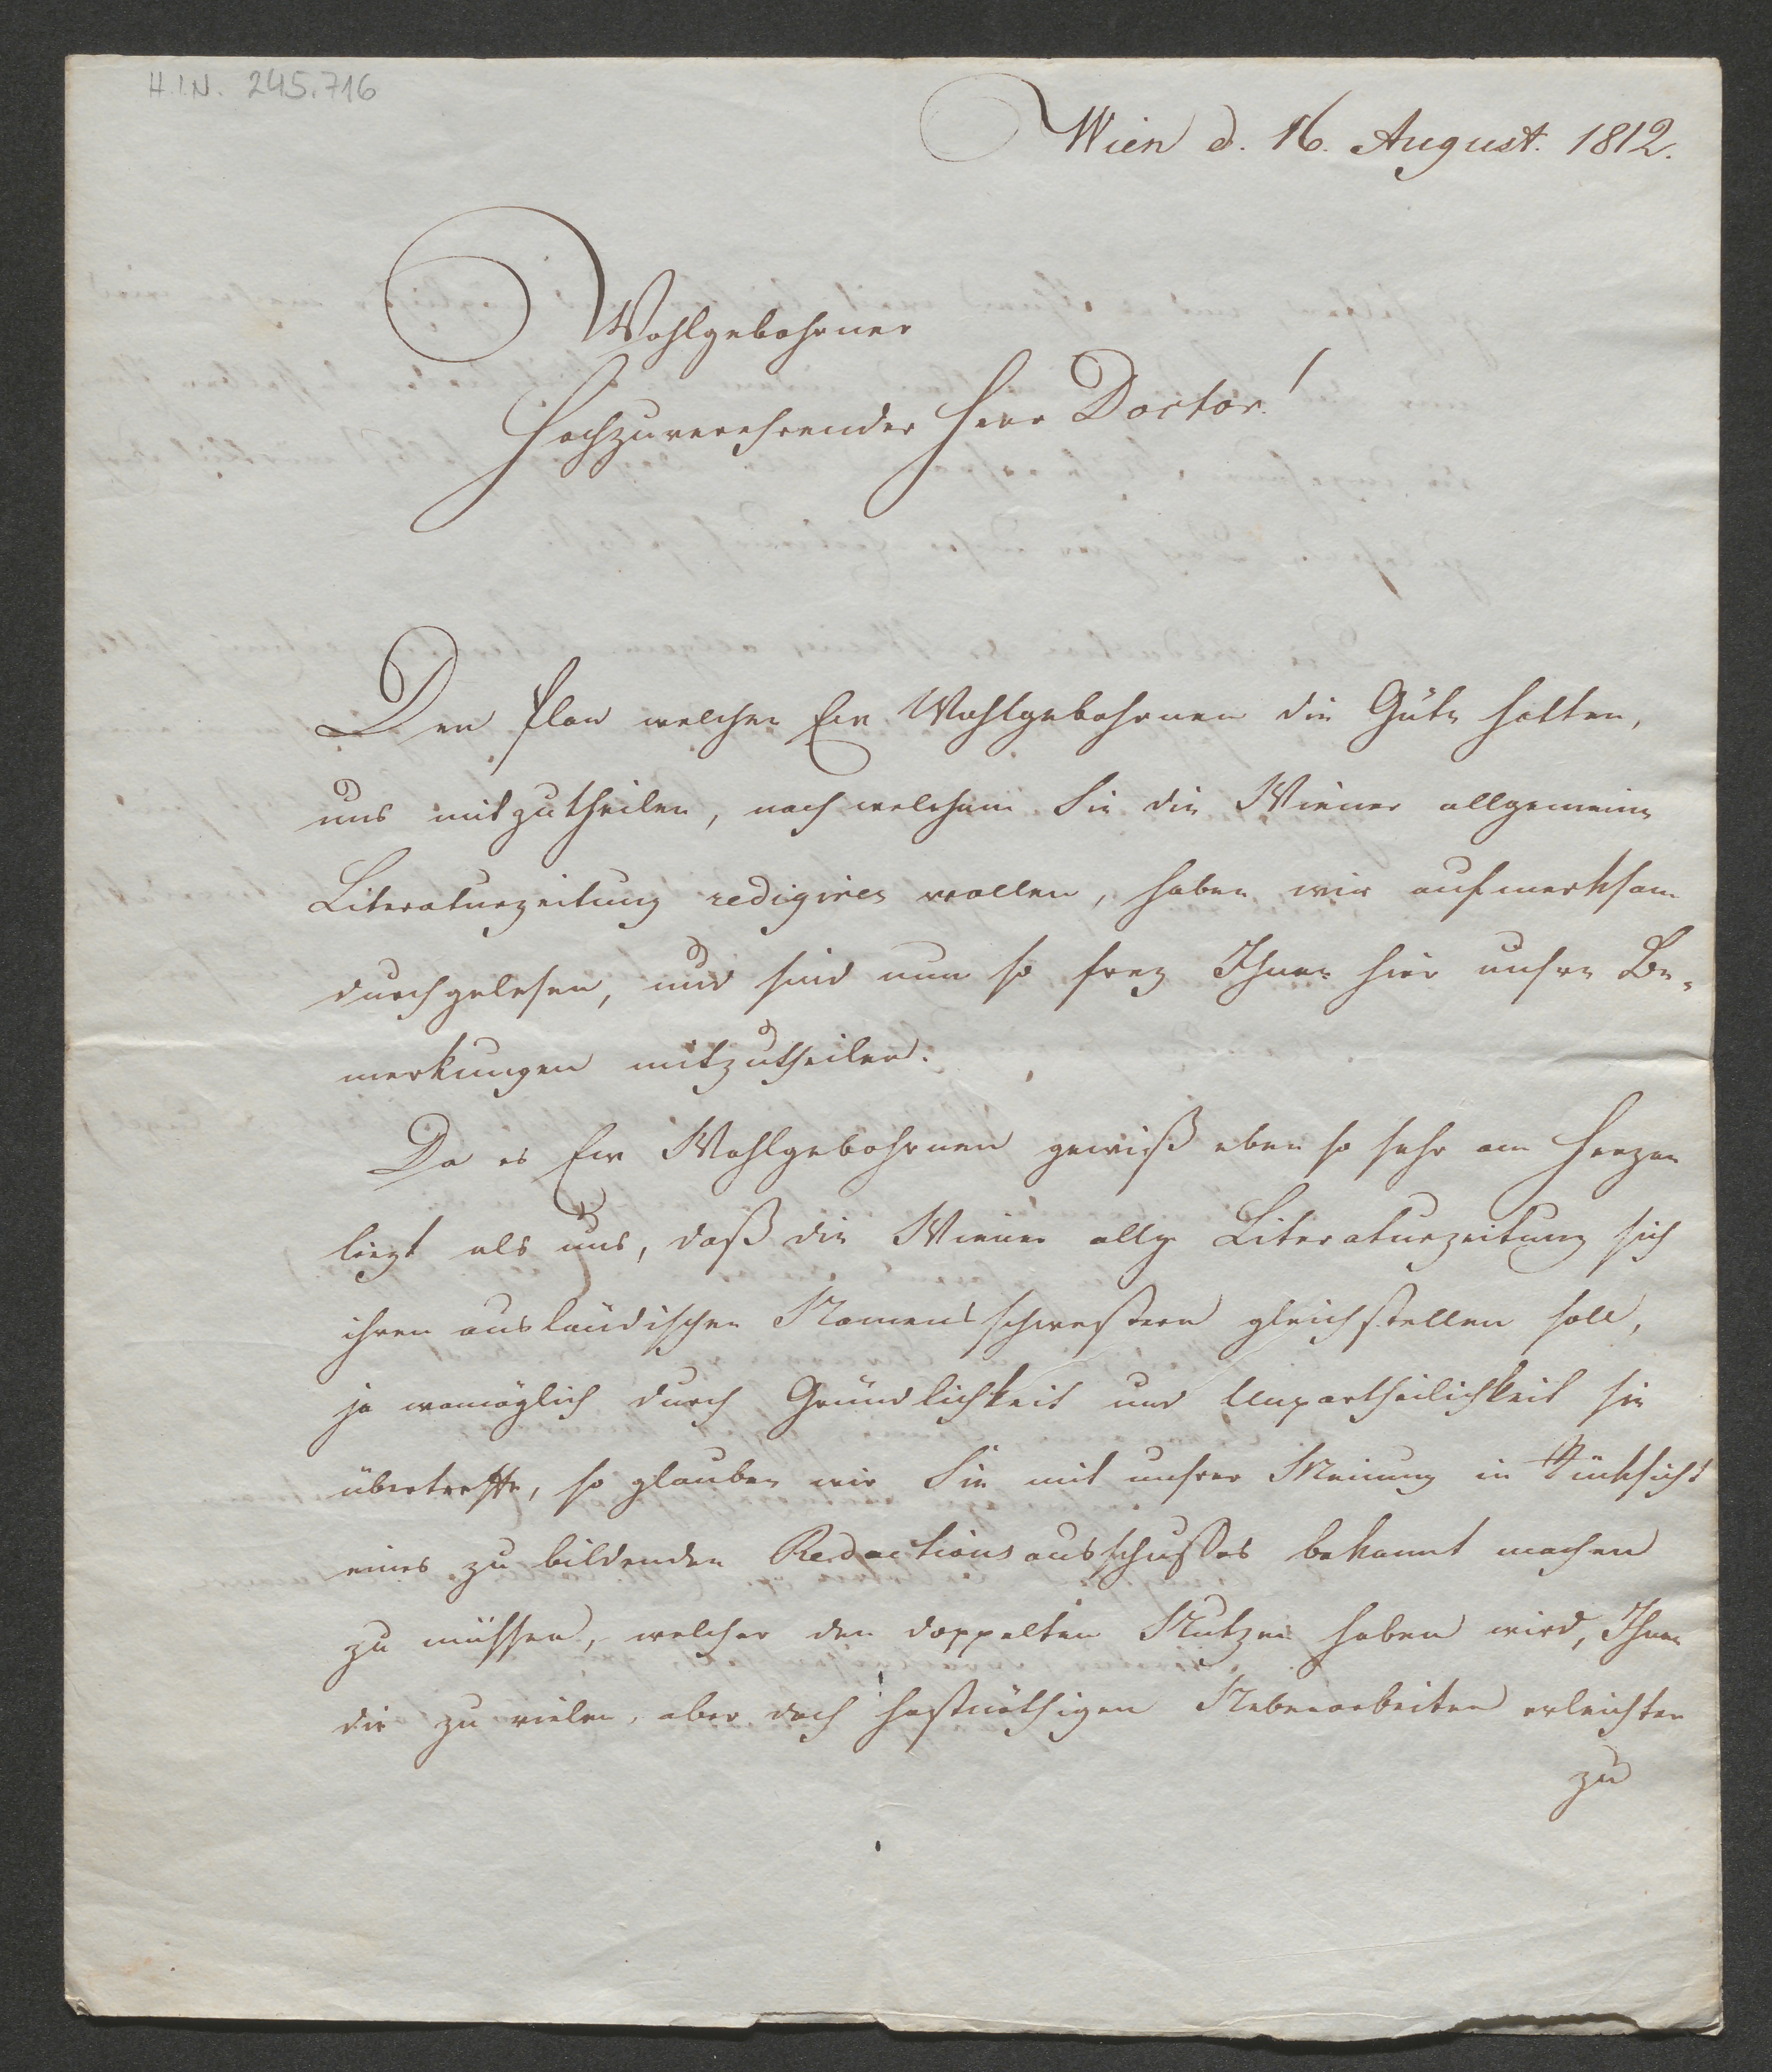 H.I.N. 245.716
Wien d. 16. August. 1812.
Wohlgebohrner
Hochzuverehrender Herr Doctor!
Den Plan welchen Eur Wohlgebohrnen die Güte hatten,
uns mitzutheilen, nach welchem Sie die Wiener allgemeine
Literaturzeitung redigiren wollen, haben wir aufmerksam
durchgelesen, und sind nun so frey Ihnen hier unsre Be-
merkungen mitzutheilen.
Da es Eur Wohlgebohrnen gewiß eben so sehr am Herzen
liegt als uns, daß die Wiener allg Literaturzeitung sich
ihren ausländischen Namensschwestern gleichstellen soll,
ja womöglich durch Gründlichkeit und Unpartheilichkeit sie
übertreffe, so glauben wir Sie mit unsrer Meinung in Rücksicht
eines zu bildenden Redactionsausschußes bekannt machen
zu müssen, welcher den doppelten Nutzen haben wird, Ihnen
die zu vielen, aber doch höchstnöthigen Nebenarbeiten erleichtern
zu